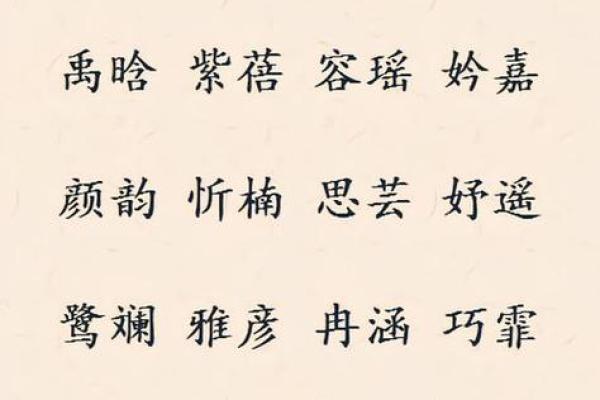 禹晗 紫蓓 容瑶 妗嘉
颜韵 忻楠 思芸 妤遥
鹭斓 雅彦 冉涵 巧霏